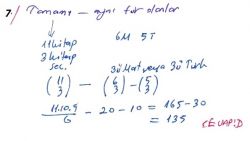 7. Tamamı – aynı tür olanlar
11 kitap 6M 5T
3 kitap
seç. 3ü Mat veya 3ü Türk
(11 3) – (6 3) – (5 3)
11.10.9 / 6 – 20 – 10 = 165 – 30
= 135
CEVAP: D